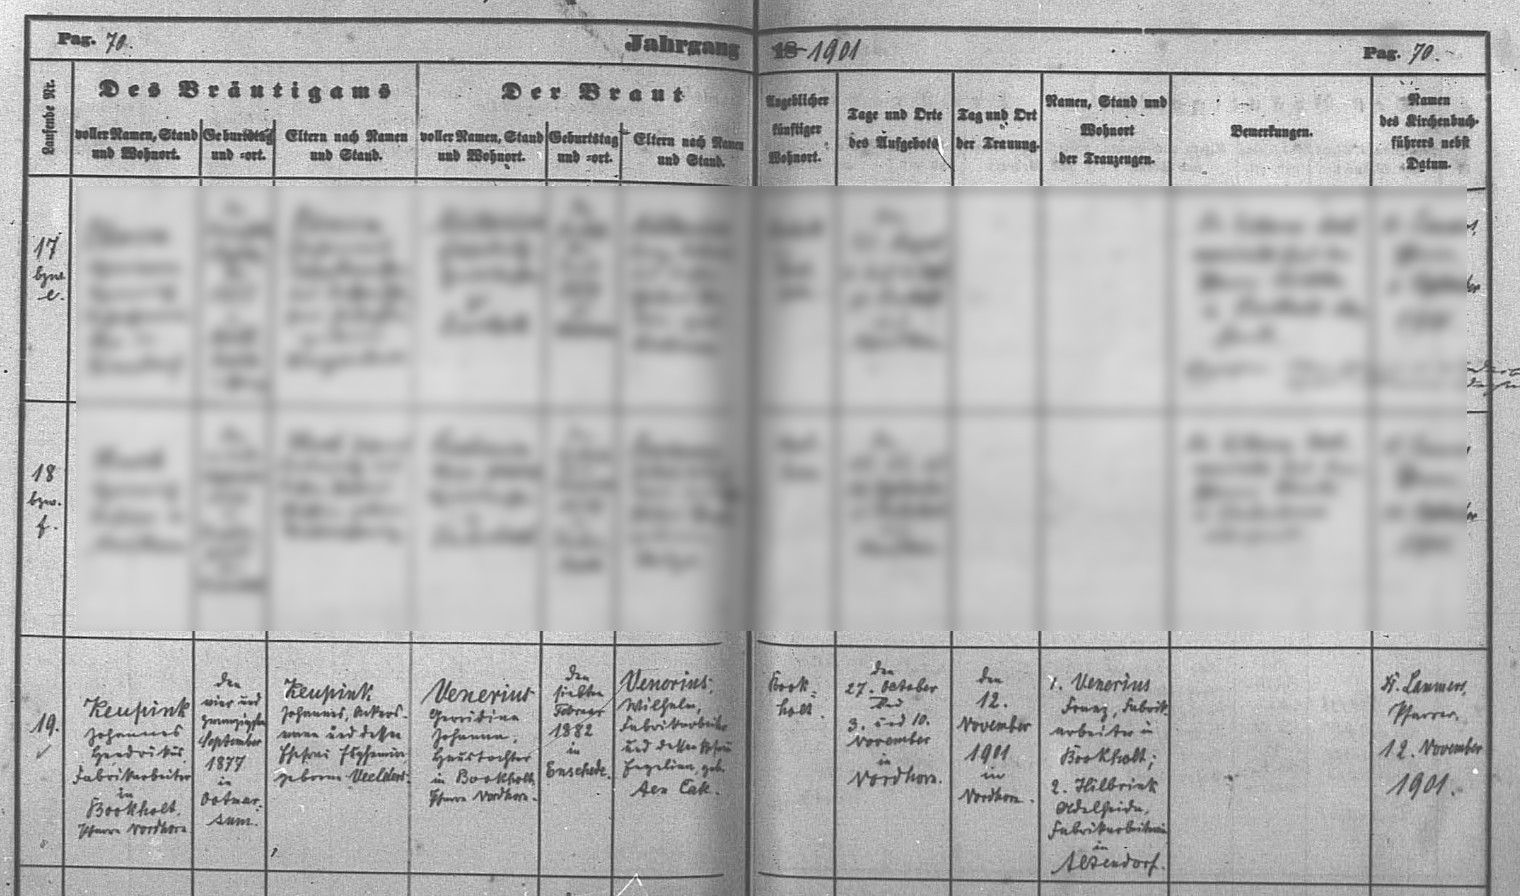 Pag. 70.
Jahrgang 18 1901
Pag. 70.
Laufende Nr.
Des Bräutigams
voller Namen, Stand
und Wohnort.
Geburtstag
und =ort.
Eltern nach Namen
und Stand.
Der Braut
voller Namen, Stand
und Wohnort.
Geburtstag
und =ort.
Eltern nach Namen
und Stand.
Angeblicher
künftiger
Wohnort.
Tage und Orte
des Aufgebots
Tag und Ort
der Trauung.
Namen, Stand und
Wohnort
der Trauzeugen.
Bemerkungen.
Namen
des Kirchenbuch-
führers nebst
Datum.
17
bzw.
e.
18
bzw.
f.
19.
Keupink
Johannes
Hendrikus,
Fabrikarbeiter
in
Bookholt,
Pfarre Nordhorn
den
vier und
zwanzigsten
September
1877
in
Ootmar-
sum.
Keupink
Johannes, Ackers-
mann und dessen
Ehefrau
geborene
Venerius
Gerridina
Johanna,
Haustochter
in Bookholt,
Pfarre Nordhorn.
den
siebten
Februar
1882
in
Enschede.
Venerius,
Wilhelm,
Fabrikarbeiter
und dessen Ehefrau
Engelina, geb.
ten Cate.
Book=
holt.
den
27. October
und
3. und 10.
November
in
Nordhorn.
den
12.
November
1901
in
Nordhorn.
1. Venerius
Franz, Fabrik-
arbeiter in
Bookholt;
2. Hilbrink
Adelheida,
Fabrikarbeiterin
in
Altendorf.
H. Lammers,
Pfarrer,
12. November
1901.